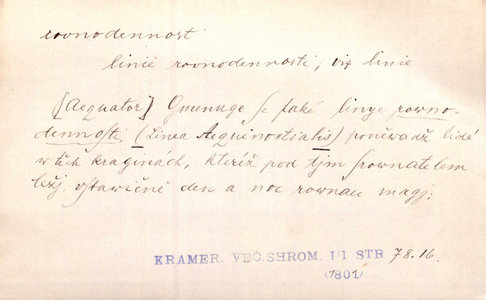 rovnodennost
linie rovnodennosti, viz linie
[Aequator] Gmenuge se také linye rowno-
dennosti, (Linea Aequinoctialis) poněwadž lidé
w těch kraginách, kteréž pod tjm srownatelem
ležj ustawičně den a noc rownau magj:
KRAMER, VEČ. SHROM. I/1 STR 78.16.
(1801)